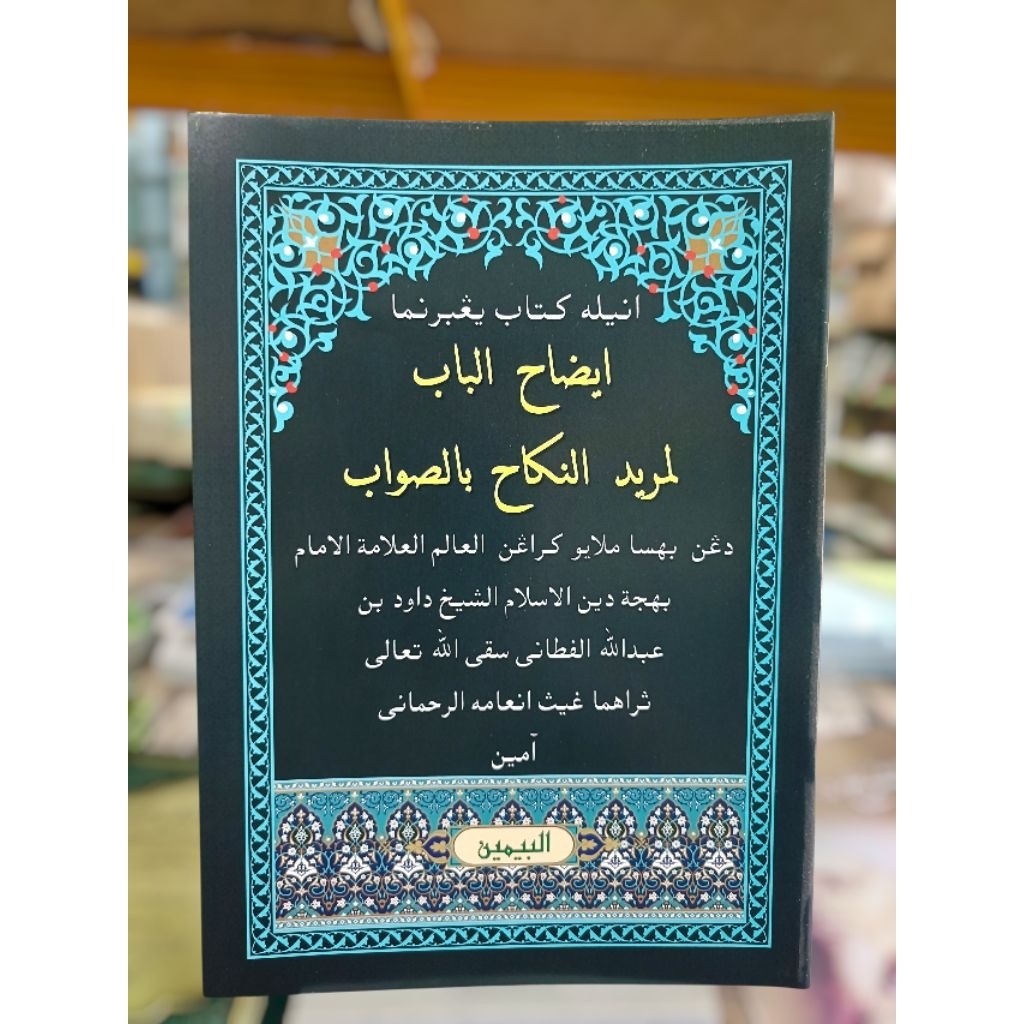 انيله كتاب يڠبرنما
ايضاح الباب
لمريد النكاح بالصواب
دڠن بهسا ملايو كراڠن العالم العلامة الامام
بهجة دين الاسلام الشيخ داود بن
عبدالله الفطانى سقى الله تعالى
ثراهما غيث انعامه الرحمانى
آمين
البيمين